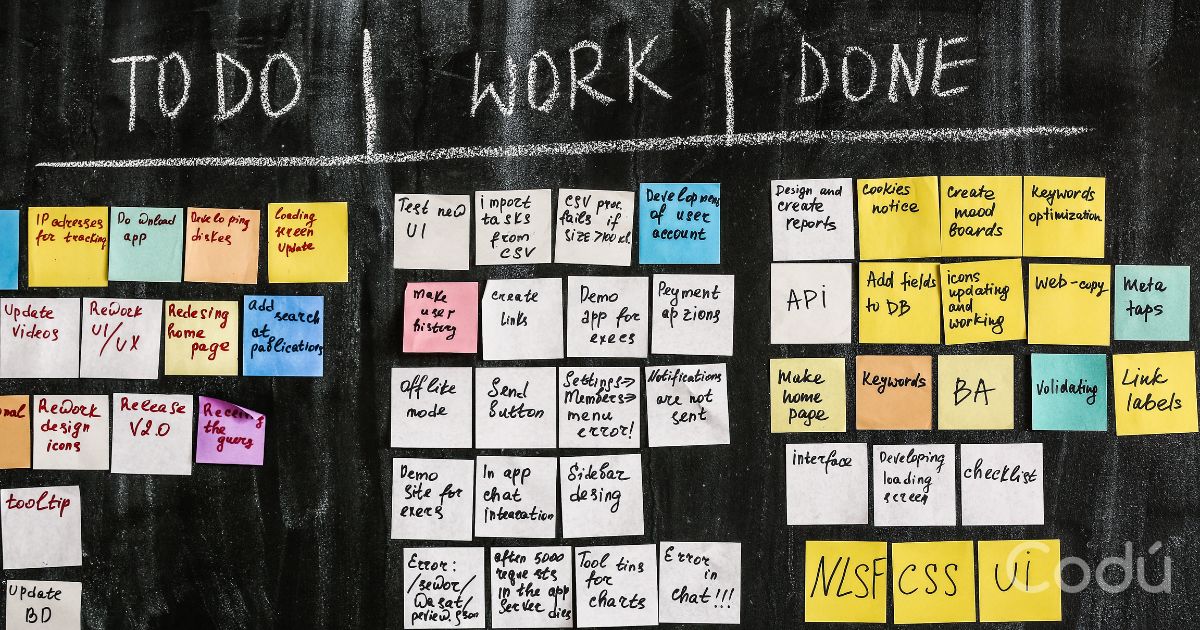 TO DO
WORK
DONE
IP adresses
for tracking
Download
app
Developing
diskes
Loading
screen
Update
Update
Videos
ReWork
UI/UX
Redesing
home
page
add
search
at
publications
nal
ReWork
design
icons
Release
V2.0
the
tooltip
Update
BD
Test new
UI
import
tasks
from
CSV
CSV proc.
fails if
size >100
Development
of user
account
make
user
history
create
links
Demo
app for
execs
Peyment
options
Offlike
mode
Send
button
Settings=>
Members=>
menu
error!
Notifications
are not
sent
Demo
site for
execs
In app
chat
Sidebar
desing
Error:
after 5000
requests
in the app
Server dies
Tool tins
for
charts
Error
in
chat!!!
Design and
create
reports
cookies
notice
create
mood
boards
keywords
optimization
API
Add fields
to DB
icons
updating
and
working
Web-copy
Meta
taps
Make
home
page
Keywords
BA
Validating
Link
labels
interface
Developing
loading
screen
checklist
NLSF
CSS
Ui
Codú